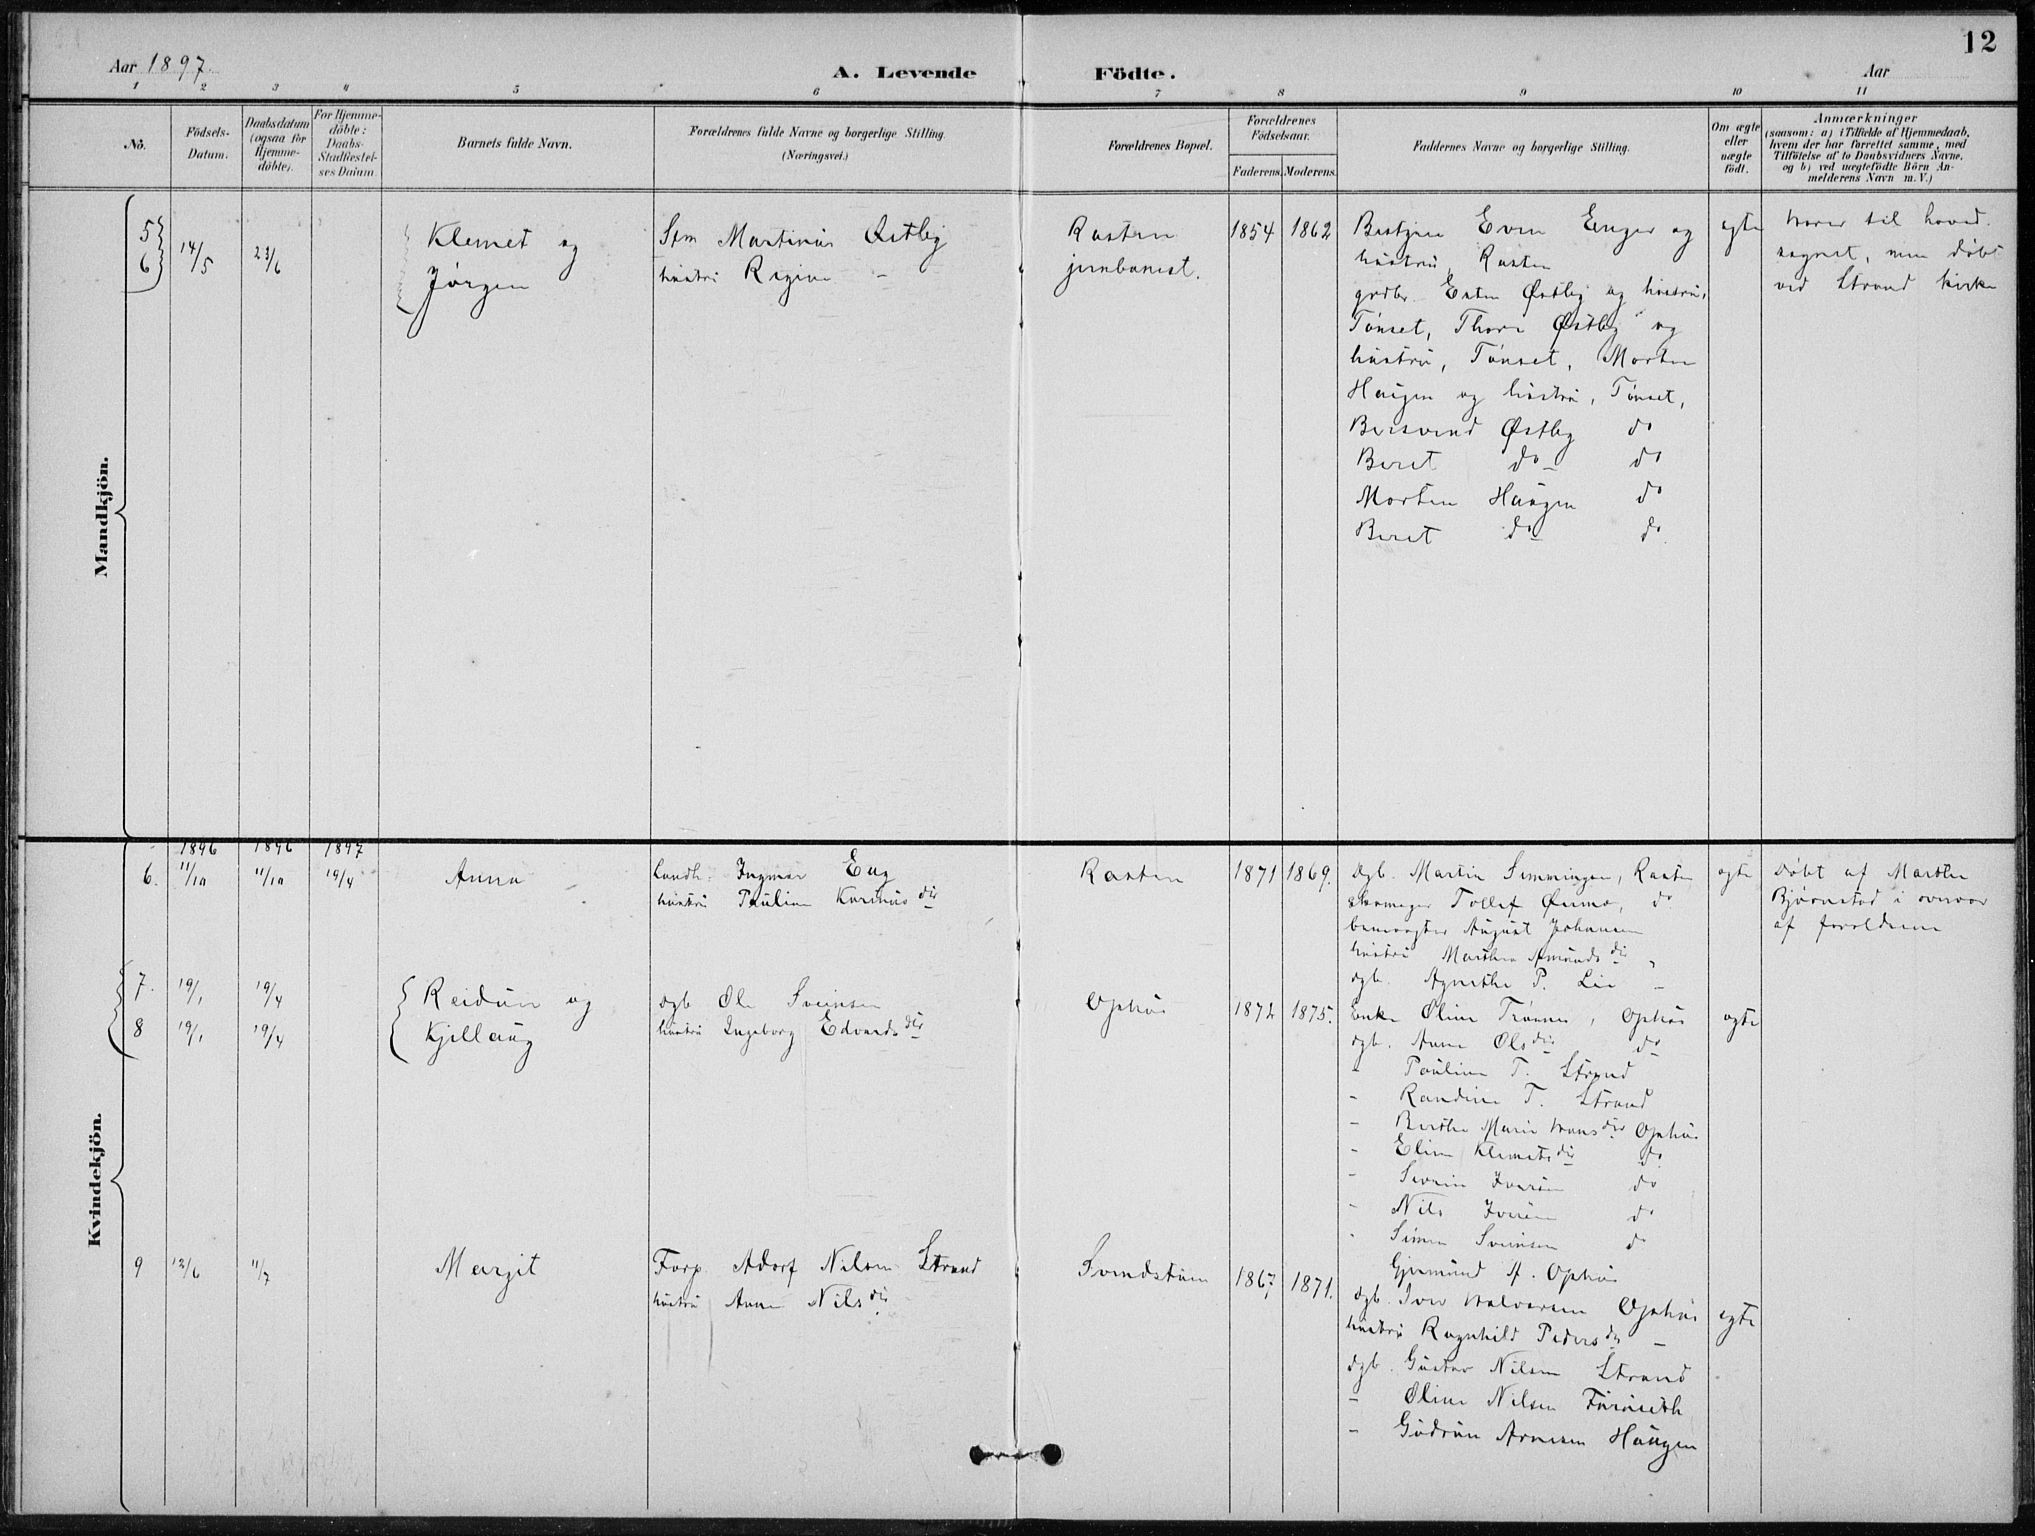 12
Aar 1897.
A. Levende Födte.
Aar
1 2 3 4 5 6 7 8 9 10 11
No.
Födsels-Datum.
Daabsdatum (ogsaa for Hjemme-döbte).
For Hjemme-döbte: Daabs-Stadfæstel-ses Datum.
Barnets fulde Navn.
Forældrenes fulde Navne og borgerlige Stilling. (Næringsvei.)
Forældrenes Bopæl.
Forældrenes Födselsaar.
Faderens. Moderens.
Faddernes Navne og borgerlige Stilling.
Om ægte eller uægte födt.
Anmærkninger
(saasom: a) i Tilfælde af Hjemmedaab, hvem der har forrettet samme, med Tilföielse af to Daabsvidners Navne, og b) ved uægtefödte Börn An-melderens Navn m. V.)
Mandkjön.
5
6
14/5
23/6
Klemet og
Jørgen
Martinus Østby
hustru Regine
Rasten
1854 1862
Even Enger og
hustru, Rasten
grdbr. Esten Østby og hustru,
Tönset, Thore Østby og
hustru, Tönset, Morten
Haugen og hustru, Tönset,
Bersvend Østby do
Beret do do
Morten Haugen do
Beret do do
egte
hører til hoved-
sognet, men döbt
ved Strand kirke
Kvindekjön.
1896 1896 1897
6. 11/10 11/10 19/4
Anna
landh. Ingmar Eng
hustru Pauline Karinus dtr
Rasten
1871 1869.
dgb. Martin Simmingen, Rasten
skomager Tollef do
August Johansen
hustru Marthe Amunds dtr
dgb. Agnethe P. Lie
egte
Döbt af Marthe
Bjørnstad i overvær
af forældrene
7. 19/1 19/4
8 19/1 19/4
Reidun og
Kjellaug
dgb Ole Sveinsen
hustru Ingeborg Edvards dtr
Ophus
1872 1875.
Enke Oline Trønnes, Ophus
dgb. Anne Ols dtr do
- Pauline T. Strand
- Randine T. Strand
- Berthe Marie Hans dtr Ophus
- Eline Klemets dtr do
- Iversen do
- Nils Iversen do
- Simen Sveinsen do
Gjermund A. Ophus
egte
9 12/6 11/7
Margit
Forp. Adorf Nilsen Strand
hustru Anne Nils dtr
Svendstuen
1867, 1871.
dgb. Iver Halvorsen Ophus
hustru Ragnhild Peders dtr -
dgb. Gustav Nilsen Strand
- Oline Nilsen Furuseth
- Gudrun Arnesen Haugen
egte